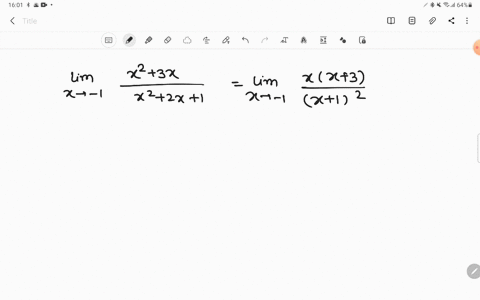 16:01 64%
Title
lim x→-1 (x²+3x)/(x²+2x+1) = lim x→-1 x(x+3)/(x+1)²